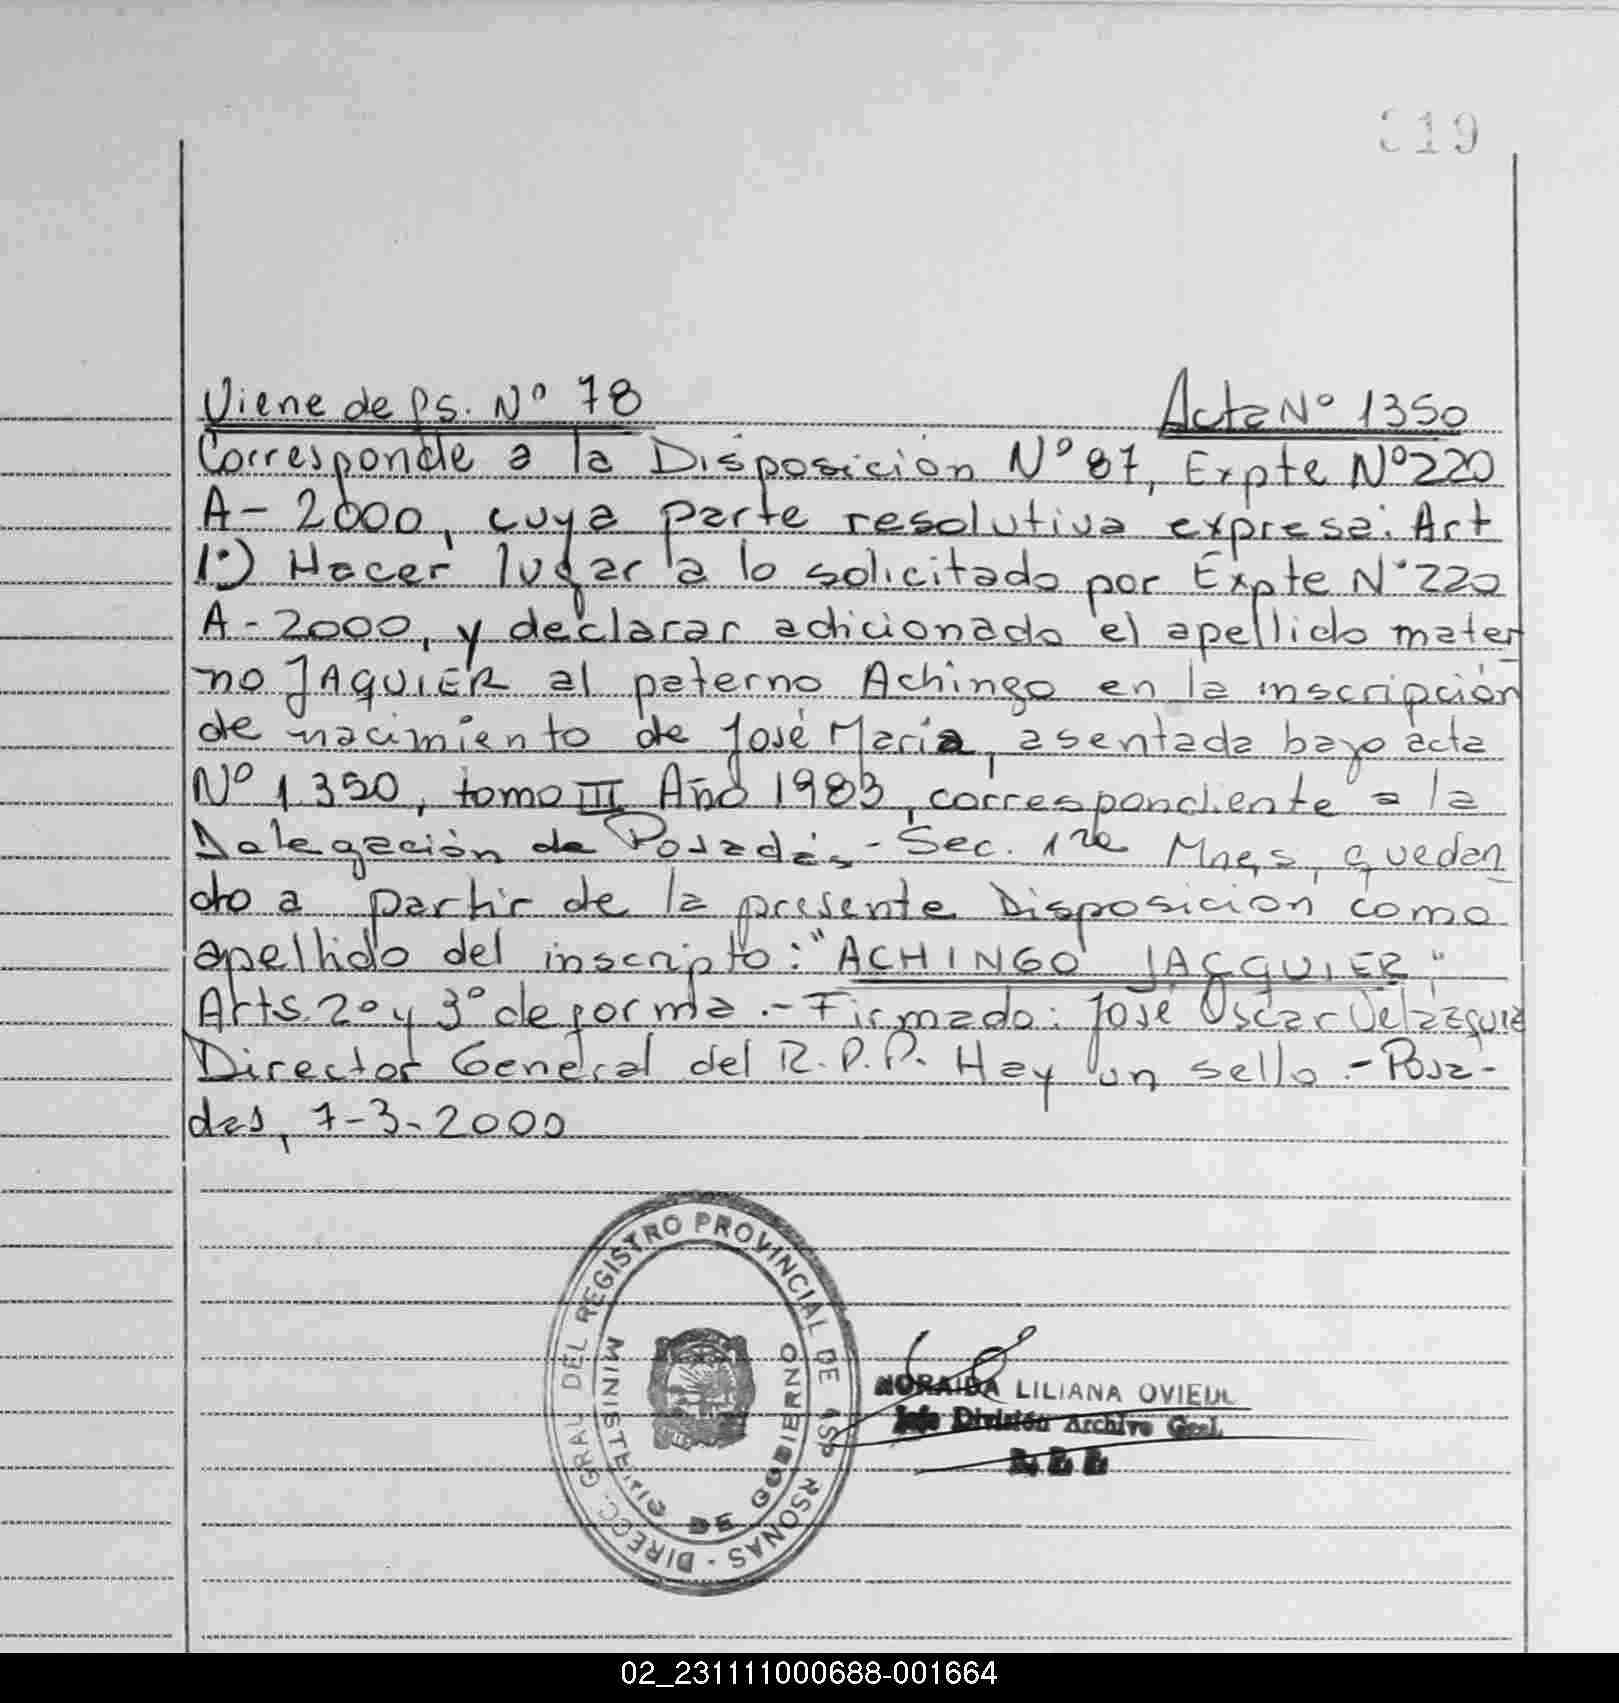 319
Viene de fs. Nº 78
Acta Nº 1350
Corresponde a la Disposición Nº 87, Expte Nº 220
A- 2000, cuya parte resolutiva expresa: Art
1º) Hacer lugar a lo solicitado por Expte Nº 220
A- 2000, y declarar adicionado el apellido mater
no JAQUIER al paterno Achingo en la inscripción
de nacimiento de José María, asentada bajo acta
Nº 1350, tomo III Año 1983, correspondiente a la
Delegación de Posadas - Sec. 1ra Mnes, quedan
do a partir de la presente Disposición como
apellido del inscripto: "ACHINGO JACQUIER"
Arts. 2º y 3º de forma.- Firmado: José Oscar Velázquez
Director General del R.P.P. Hay un sello.- Posa-
das, 7-3-2000
DIRECC. GRAL DEL REGISTRO PROVINCIAL DE LAS PERSONAS -
MINISTERIO DE GOBIERNO
NORAIDA LILIANA OVIEDO
Jefe División Archivo Gral.
R. P. P.
02_231111000688-001664